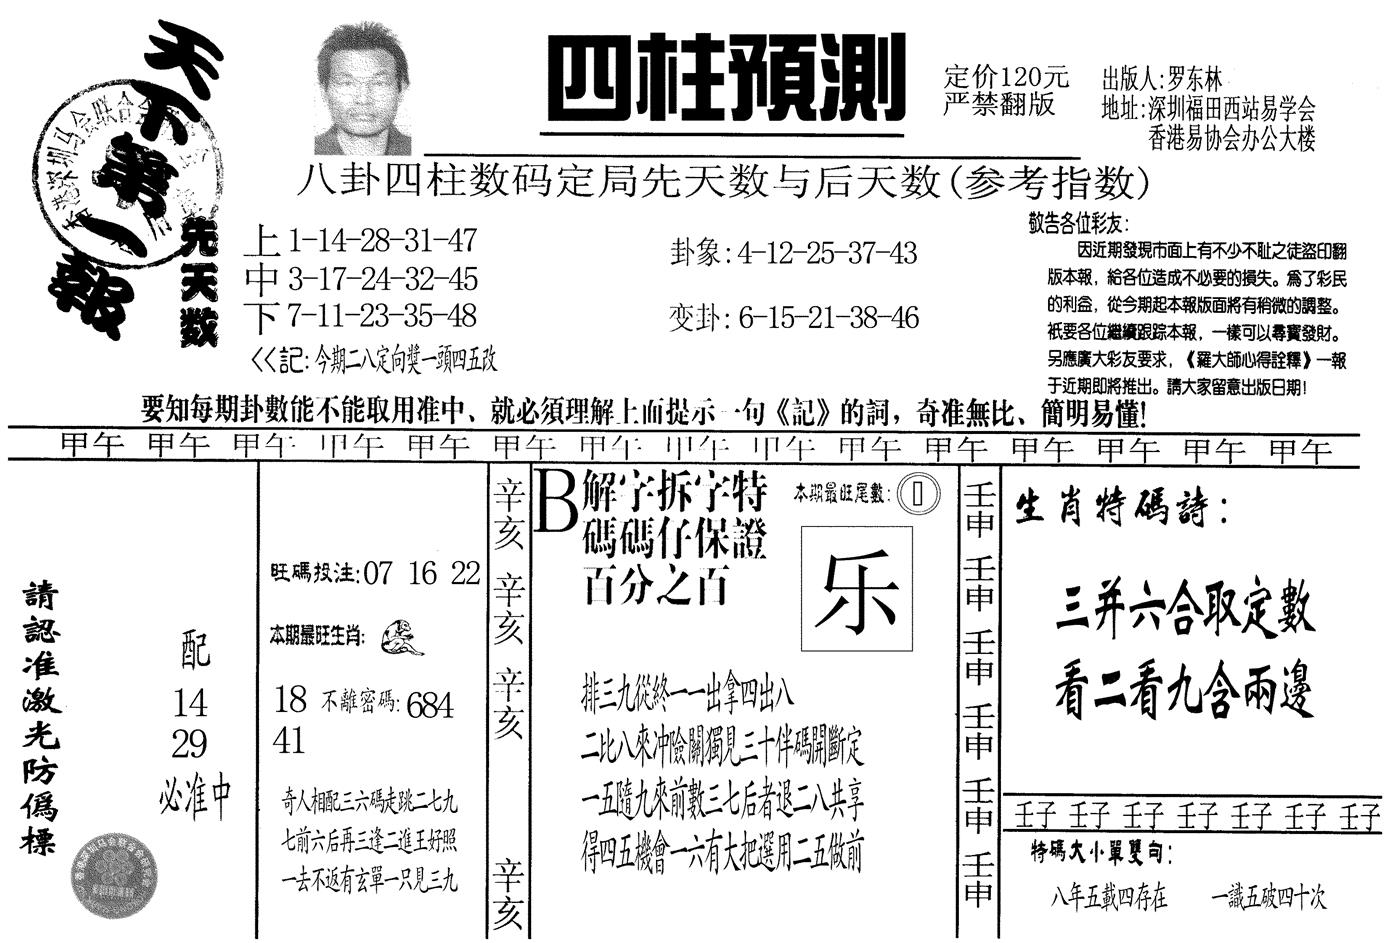 天下第一報
先天数
四柱預測
定价120元
严禁翻版
出版人:罗东林
地址:深圳福田西站易学会
香港易协会办公大楼
八卦四柱数码定局先天数与后天数(参考指数)
上 1-14-28-31-47
中 3-17-24-32-45
下 7-11-23-35-48
<<記: 今期二八定向獎一頭四五改
卦象: 4-12-25-37-43
变卦: 6-15-21-38-46
敬告各位彩友:
因近期發現市面上有不少不耻之徒盜印翻
版本報，給各位造成不必要的損失。為了彩民
的利益，從今期起本報版面將有稍微的調整。
衹要各位繼續跟踪本報，一樣可以尋寶發財。
另應廣大彩友要求，《羅大師心得詮釋》一報
于近期即將推出。請大家留意出版日期!
要知每期卦數能不能取用准中、就必須理解上面提示一句《記》的詞，奇准無比、簡明易懂!
甲午 甲午 甲午 甲午 甲午 甲午 甲午 甲午 甲午 甲午 甲午 甲午 甲午 甲午 甲午
請認准激光防僞標
配
14
29
必准中
旺碼投注:07 16 22
本期最旺生肖:
18 不離密碼:684
41
奇人相配三六碼走跳二七九
七前六后再三逢二進王好照
一去不返有玄單一只見三九
辛亥
辛亥
辛亥
辛亥
B 解字拆字特
碼碼仔保證
百分之百
本期最旺尾數:
乐
排三九從終一一出拿四出八
二比八來冲險關獨見三十伴碼開斷定
一五隨九來前數三七后者退二八共享
得四五機會一六有大把選用二五做前
壬申
壬申
壬申
壬申
壬申
壬申
生肖特碼詩:
三并六合取定數
看二看九含兩邊
壬子 壬子 壬子 壬子 壬子 壬子 壬子
特碼大小單雙句:
八年五載四存在 一識五破四十次